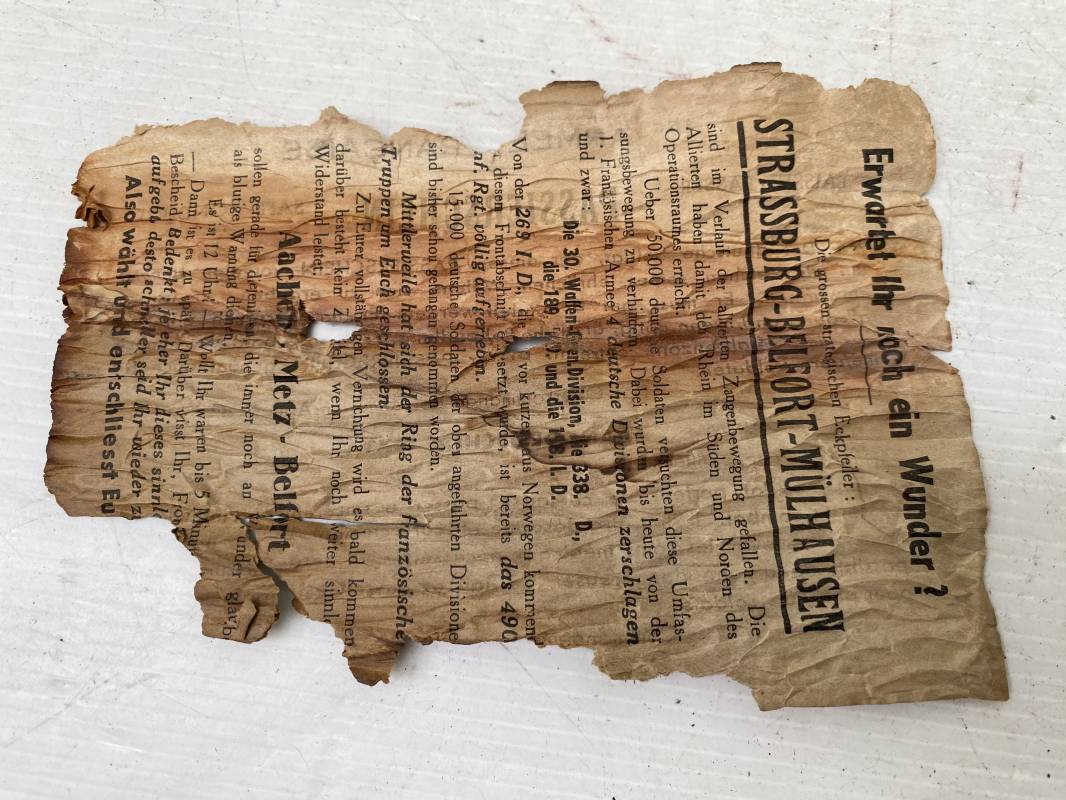 Erwartet Ihr noch ein Wunder ?
Die grossen strategischen Eckpfeiler :
STRASSBURG-BELFORT-MÜLHAUSEN
sind im Verlauf der alliierten Zangenbewegung gefallen. Die
Alliierten haben damit den Rhein im Süden und Norden des
Operationsraumes erreicht.
Ueber 50.000 deutsche Soldaten versuchten diese Umfas-
sungsbewegung zu verhindern. Dabei wurden bis heute von der
1. Französischen Armee 4 deutsche Divisionen zerschlagen
und zwar:
Die 30. Waffen-Gren.Division, die 338. I. D.,
die 189. I. D. und die 198. I. D.
Von der 269 I. D., die vor kurzem aus Norwegen kommend
diesem Frontabschnitt eingesetzt wurde, ist bereits das 490
nf. Rgt. völlig aufgerieben.
15.000 deutsche Soldaten der oben angeführten Divisione
sind bisher schon gefangen genommen worden.
Mittlerweile hat sich der Ring der französischen
Truppen um Euch geschlossen.
Zu Eurer vollständigen Vernichtung wird es bald kommen
darüber besteht kein Zweifel, wenn Ihr noch weiter sinnl
Widerstand leistet.
Aachen - Metz - Belfort
sollen gerade für diejenigen, die immer noch an Wunder glaub
als blutige Warnung dienen.
Es ist 12 Uhr! Wollt Ihr warten bis 5 Minu
— Dann ist es zu spät. Darüber wisst Ihr, Fron
Bescheid. Bedenkt, je eher Ihr dieses sinnl
aufgebt, desto schneller seid Ihr wieder z
Also wählt und entschliesst Eu